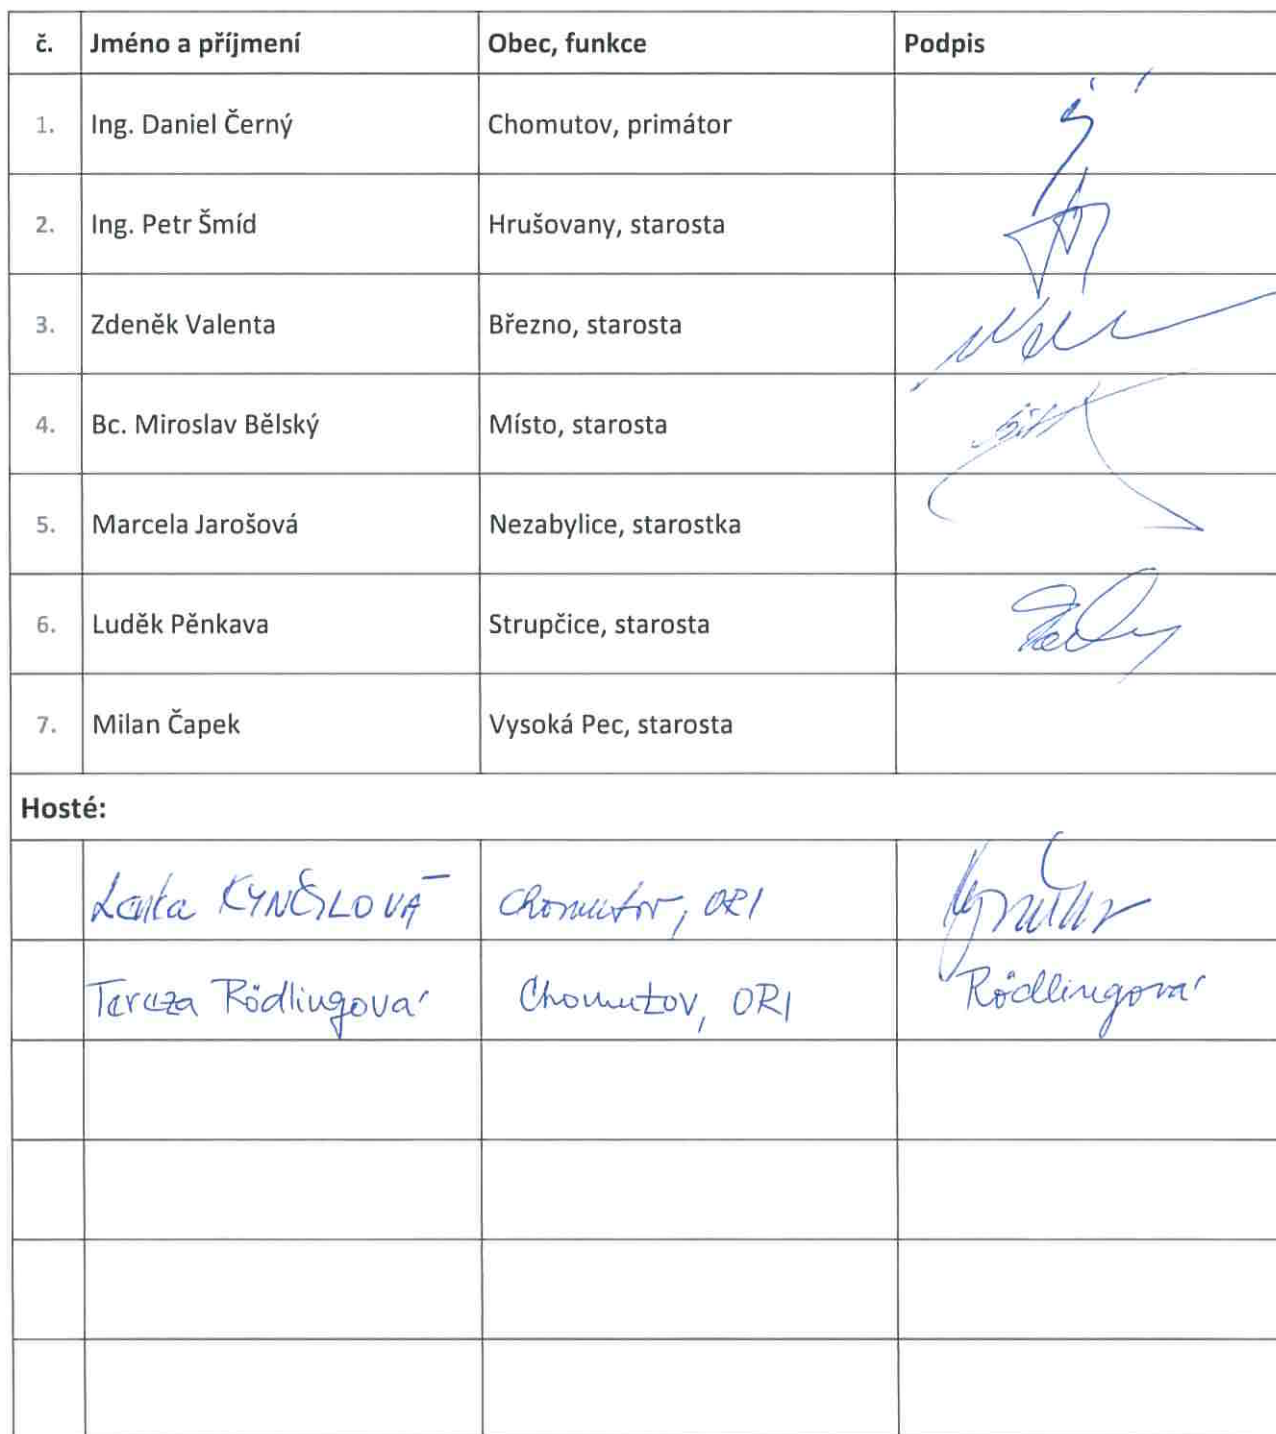 č. Jméno a příjmení Obec, funkce Podpis
1. Ing. Daniel Černý Chomutov, primátor
2. Ing. Petr Šmíd Hrušovany, starosta
3. Zdeněk Valenta Březno, starosta
4. Bc. Miroslav Bělský Místo, starosta
5. Marcela Jarošová Nezabylice, starostka
6. Luděk Pěnkava Strupčice, starosta
7. Milan Čapek Vysoká Pec, starosta
Hosté:
Lenka Chomutov, ORI
Tereza Rödlingová Chomutov, ORI Rödlingová